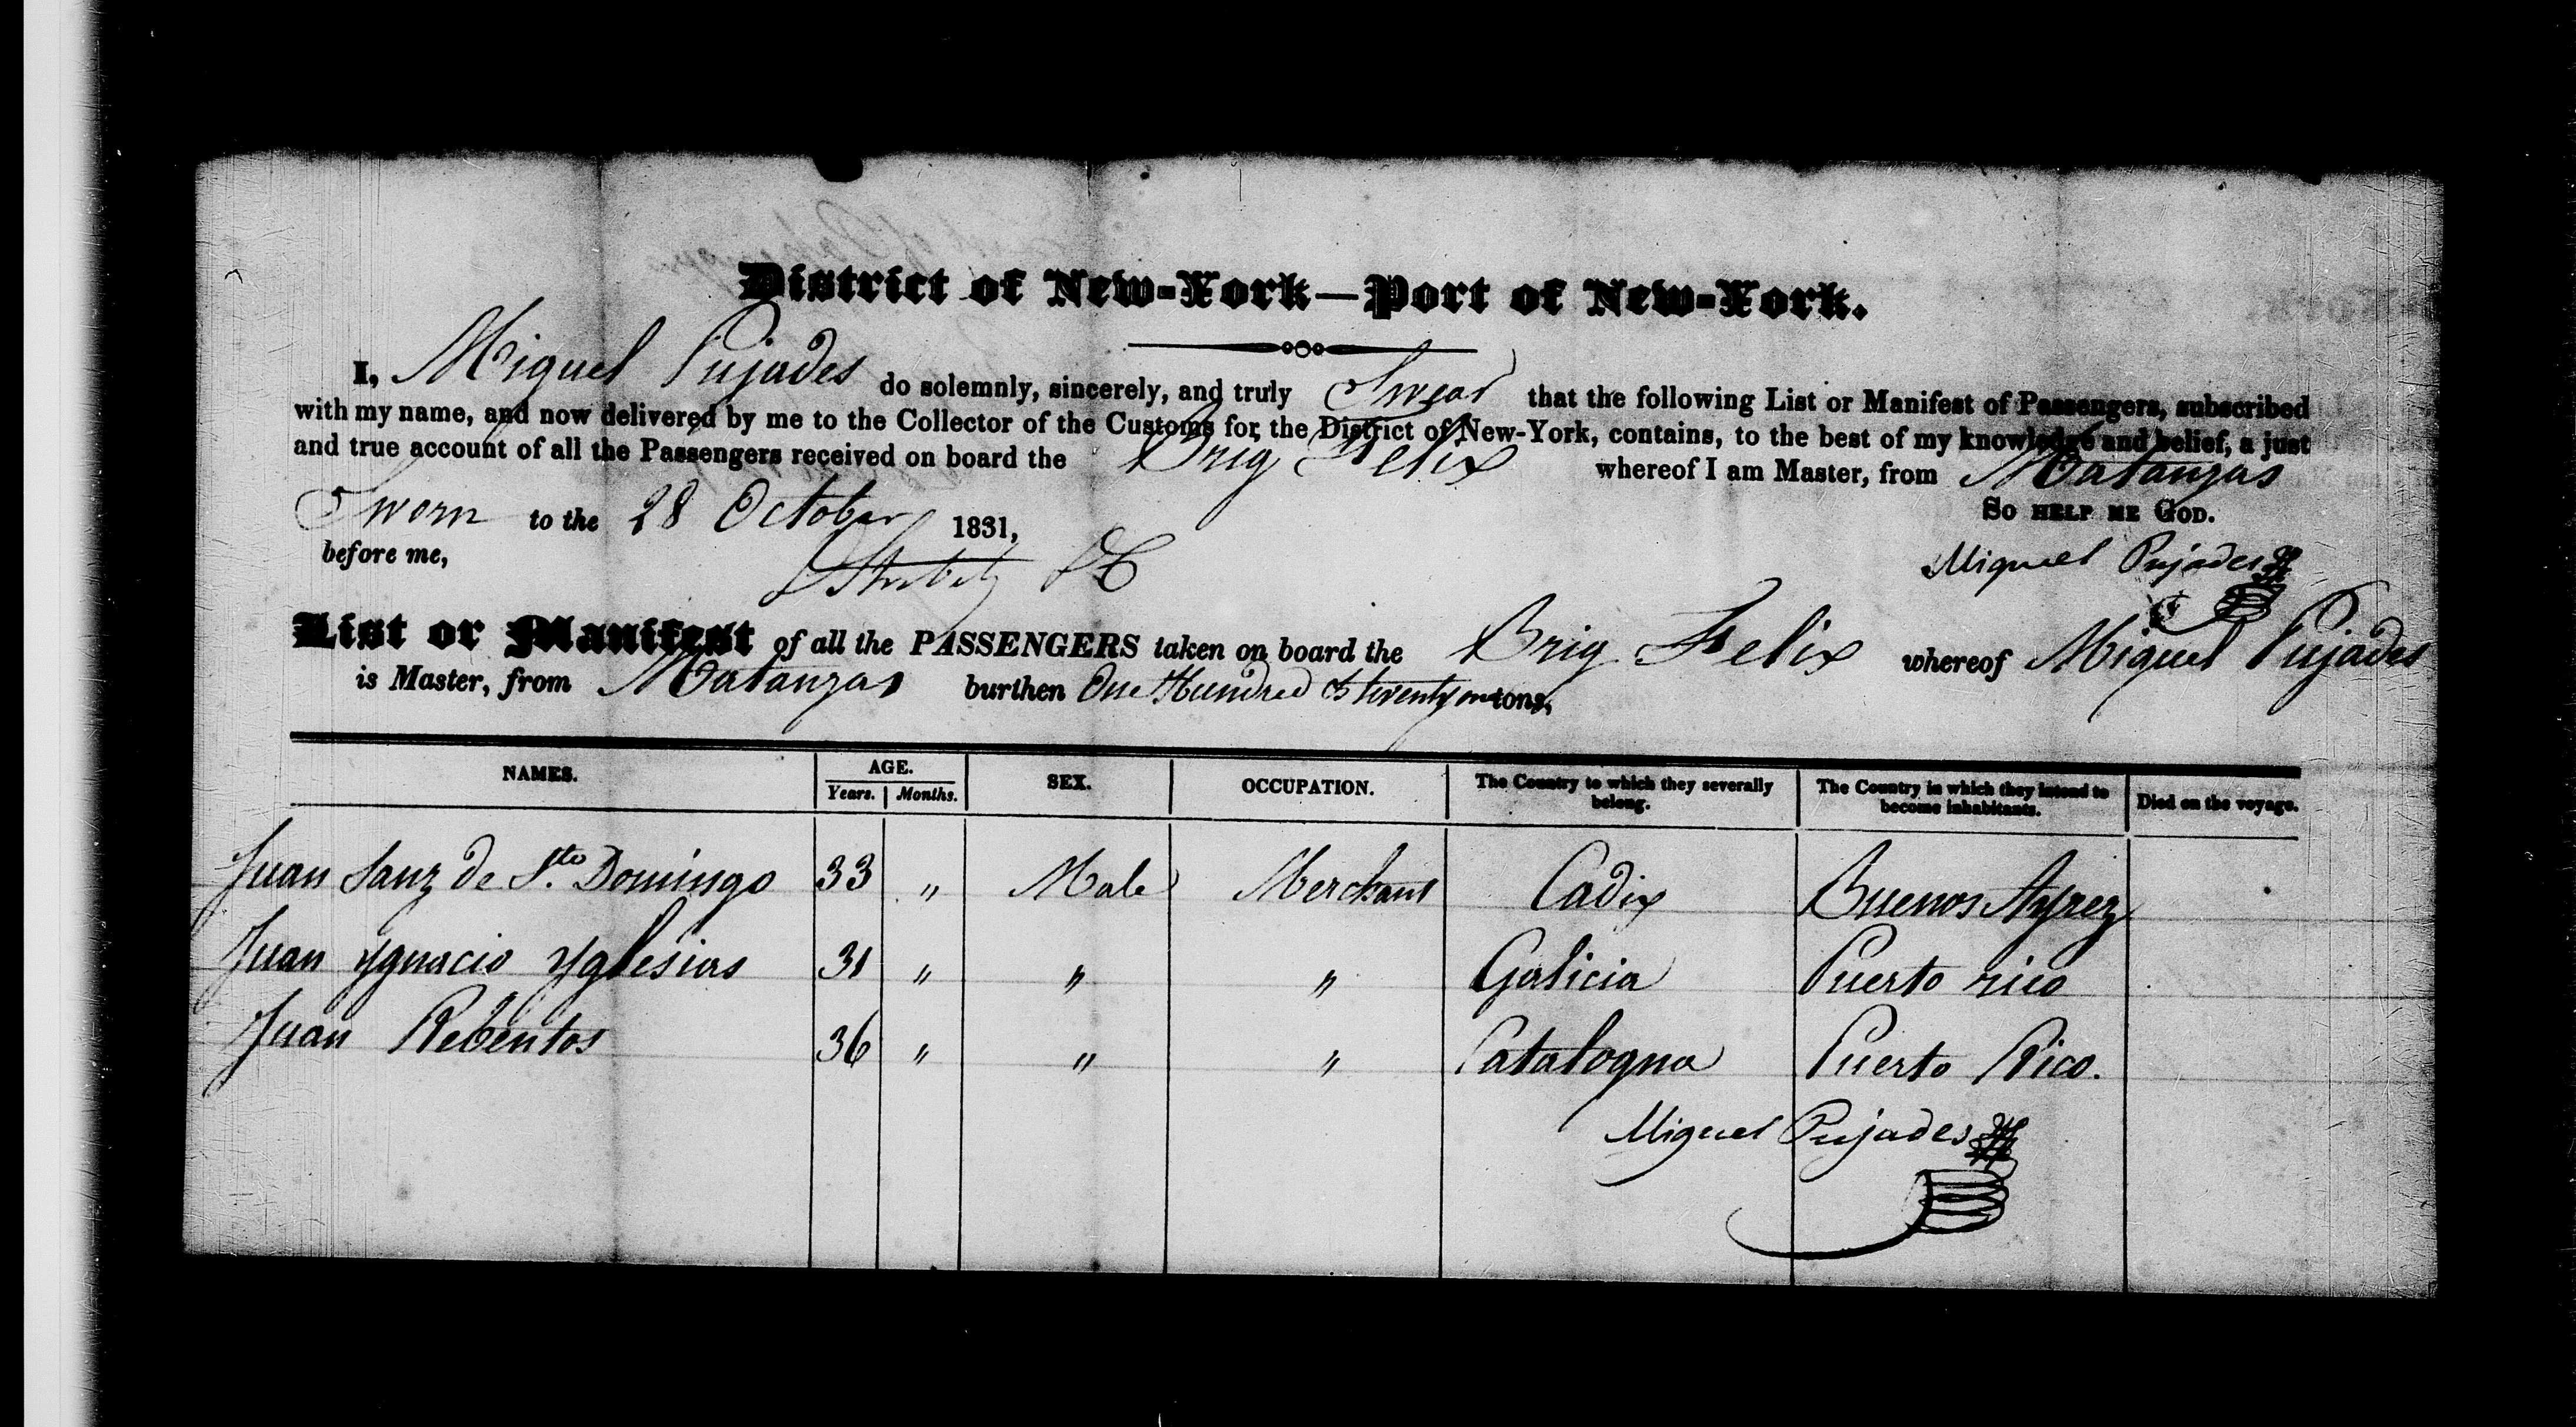 District of New-York—Port of New-York.
I, Miguel Pujades do solemnly, sincerely, and truly Swear that the following List or Manifest of Passengers, subscribed
with my name, and now delivered by me to the Collector of the Customs for the District of New-York, contains, to the best of my knowledge and belief, a just
and true account of all the Passengers received on board the Brig Felix whereof I am Master, from Matanzas
Sworn to the 28 October 1831, So HELP ME GOD.
before me,
Miguel Pujades
List or Manifest of all the PASSENGERS taken on board the Brig Felix whereof Miguel Pujades
is Master, from Matanzas burthen One Hundred & twenty one tons,
NAMES. AGE. Years. Months. SEX. OCCUPATION. The Country to which they severally belong. The Country in which they intend to become inhabitants. Died on the voyage.
Juan Sanz de Sto. Domingo 33 " Male Merchant Cadix Buenos Ayrez
Juan Ygnacio Yglesias 31 " " " Galicia Puerto rico
Juan Rebentos 36 " " " Catalogna Puerto Rico.
Miguel Pujades